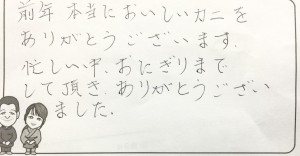 前年 本当においしいカニを
ありがとうございます.
忙しい中、おにぎりまで
して頂き、ありがとうござい
ました.